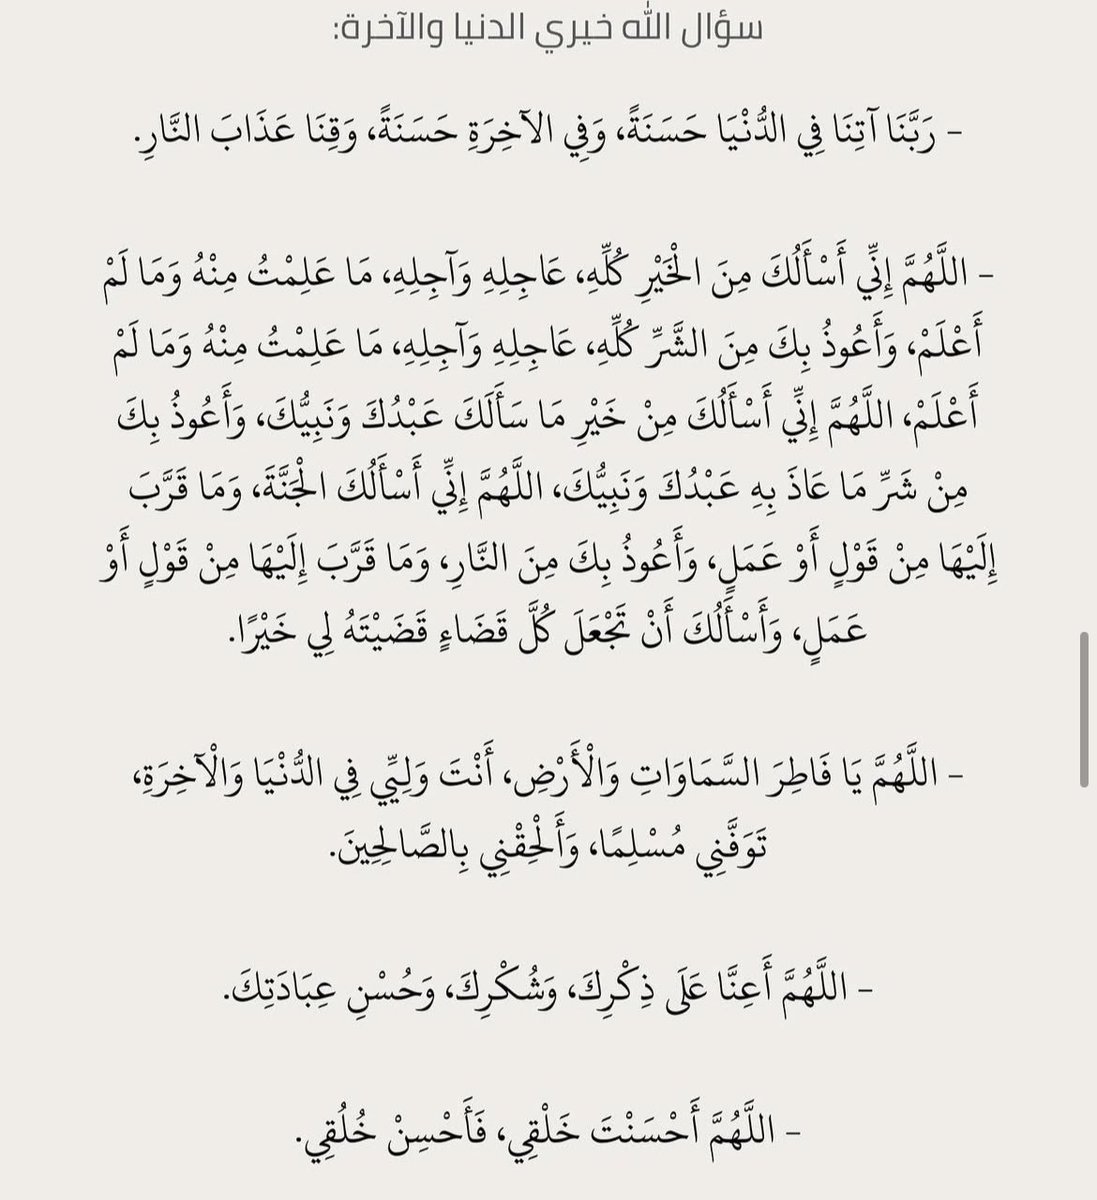 سؤال الله خيري الدنيا والآخرة:
– رَبَّنَا آتِنَا فِي الدُّنْيَا حَسَنَةً، وَفِي الآخِرَةِ حَسَنَةً، وَقِنَا عَذَابَ النَّارِ.
– اللَّهُمَّ إِنِّي أَسْأَلُكَ مِنَ الْخَيْرِ كُلِّهِ، عَاجِلِهِ وَآجِلِهِ، مَا عَلِمْتُ مِنْهُ وَمَا لَمْ
أَعْلَمْ، وَأَعُوذُ بِكَ مِنَ الشَّرِّ كُلِّهِ، عَاجِلِهِ وَآجِلِهِ، مَا عَلِمْتُ مِنْهُ وَمَا لَمْ
أَعْلَمْ، اللَّهُمَّ إِنِّي أَسْأَلُكَ مِنْ خَيْرِ مَا سَأَلَكَ عَبْدُكَ وَنَبِيُّكَ، وَأَعُوذُ بِكَ
مِنْ شَرِّ مَا عَاذَ بِهِ عَبْدُكَ وَنَبِيُّكَ، اللَّهُمَّ إِنِّي أَسْأَلُكَ الْجَنَّةَ، وَمَا قَرَّبَ
إِلَيْهَا مِنْ قَوْلٍ أَوْ عَمَلٍ، وَأَعُوذُ بِكَ مِنَ النَّارِ، وَمَا قَرَّبَ إِلَيْهَا مِنْ قَوْلٍ أَوْ
عَمَلٍ، وَأَسْأَلُكَ أَنْ تَجْعَلَ كُلَّ قَضَاءٍ قَضَيْتَهُ لِي خَيْرًا.
– اللَّهُمَّ يَا فَاطِرَ السَّمَاوَاتِ وَالْأَرْضِ، أَنْتَ وَلِيِّي فِي الدُّنْيَا وَالْآخِرَةِ،
تَوَفَّنِي مُسْلِمًا، وَأَلْحِقْنِي بِالصَّالِحِينَ.
– اللَّهُمَّ أَعِنَّا عَلَى ذِكْرِكَ، وَشُكْرِكَ، وَحُسْنِ عِبَادَتِكَ.
– اللَّهُمَّ أَحْسَنْتَ خَلْقِي، فَأَحْسِنْ خُلُقِي.